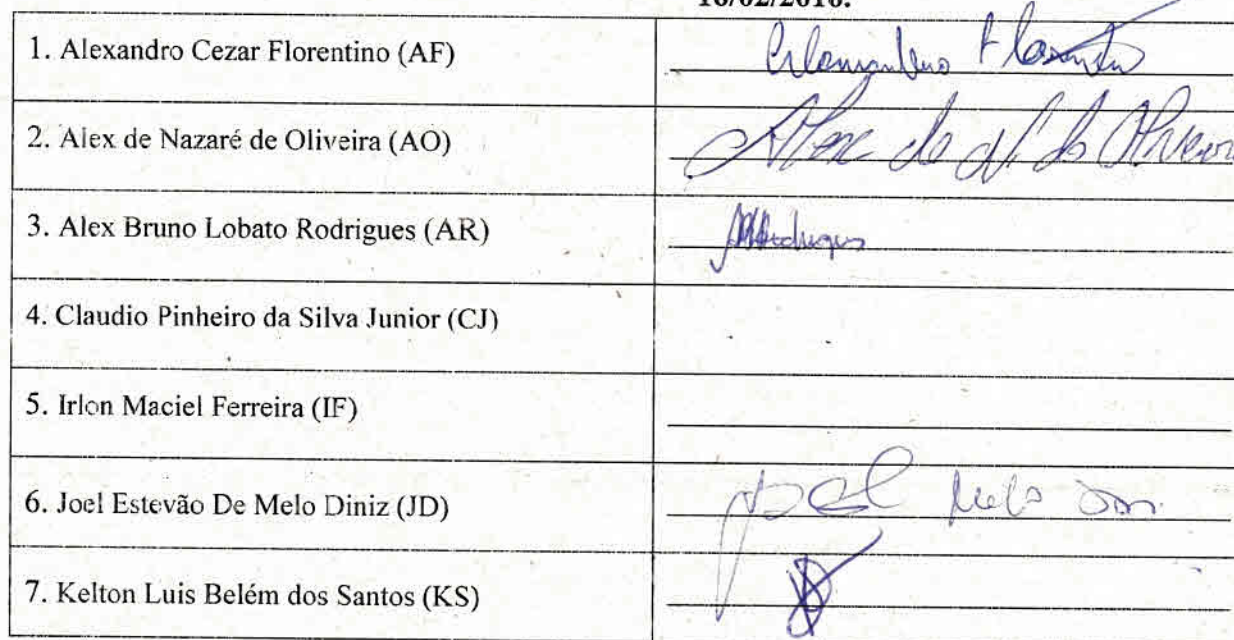 16/02/2016.
1. Alexandro Cezar Florentino (AF)
2. Alex de Nazaré de Oliveira (AO)
Alex de N. de Oliveira
3. Alex Bruno Lobato Rodrigues (AR)
Rodrigues
4. Claudio Pinheiro da Silva Junior (CJ)
5. Irlon Maciel Ferreira (IF)
6. Joel Estevão De Melo Diniz (JD)
Joel Melo
7. Kelton Luis Belém dos Santos (KS)